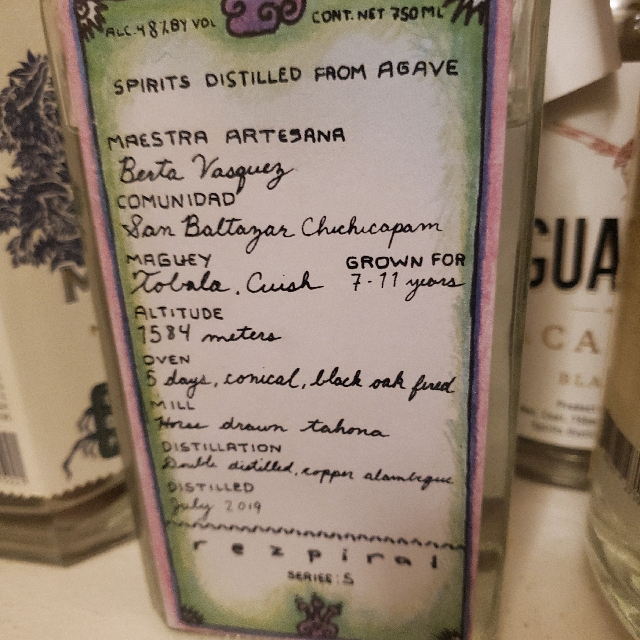 ALC. 48% BY VOL
CONT. NET 750 ML
SPIRITS DISTILLED FROM AGAVE
MAESTRA ARTESANA
Berta Vasquez
COMUNIDAD
San Baltazar Chichicapam
MAGUEY GROWN FOR
Tobala, Cuish 7-11 years
ALTITUDE
1584 meters
OVEN
5 days, conical, black oak fired
MILL
Horse drawn tahona
DISTILLATION
Double distilled, copper alambique
DISTILLED
July 2019
rezpiral
SERIE: 5
GUA
CA
BLA